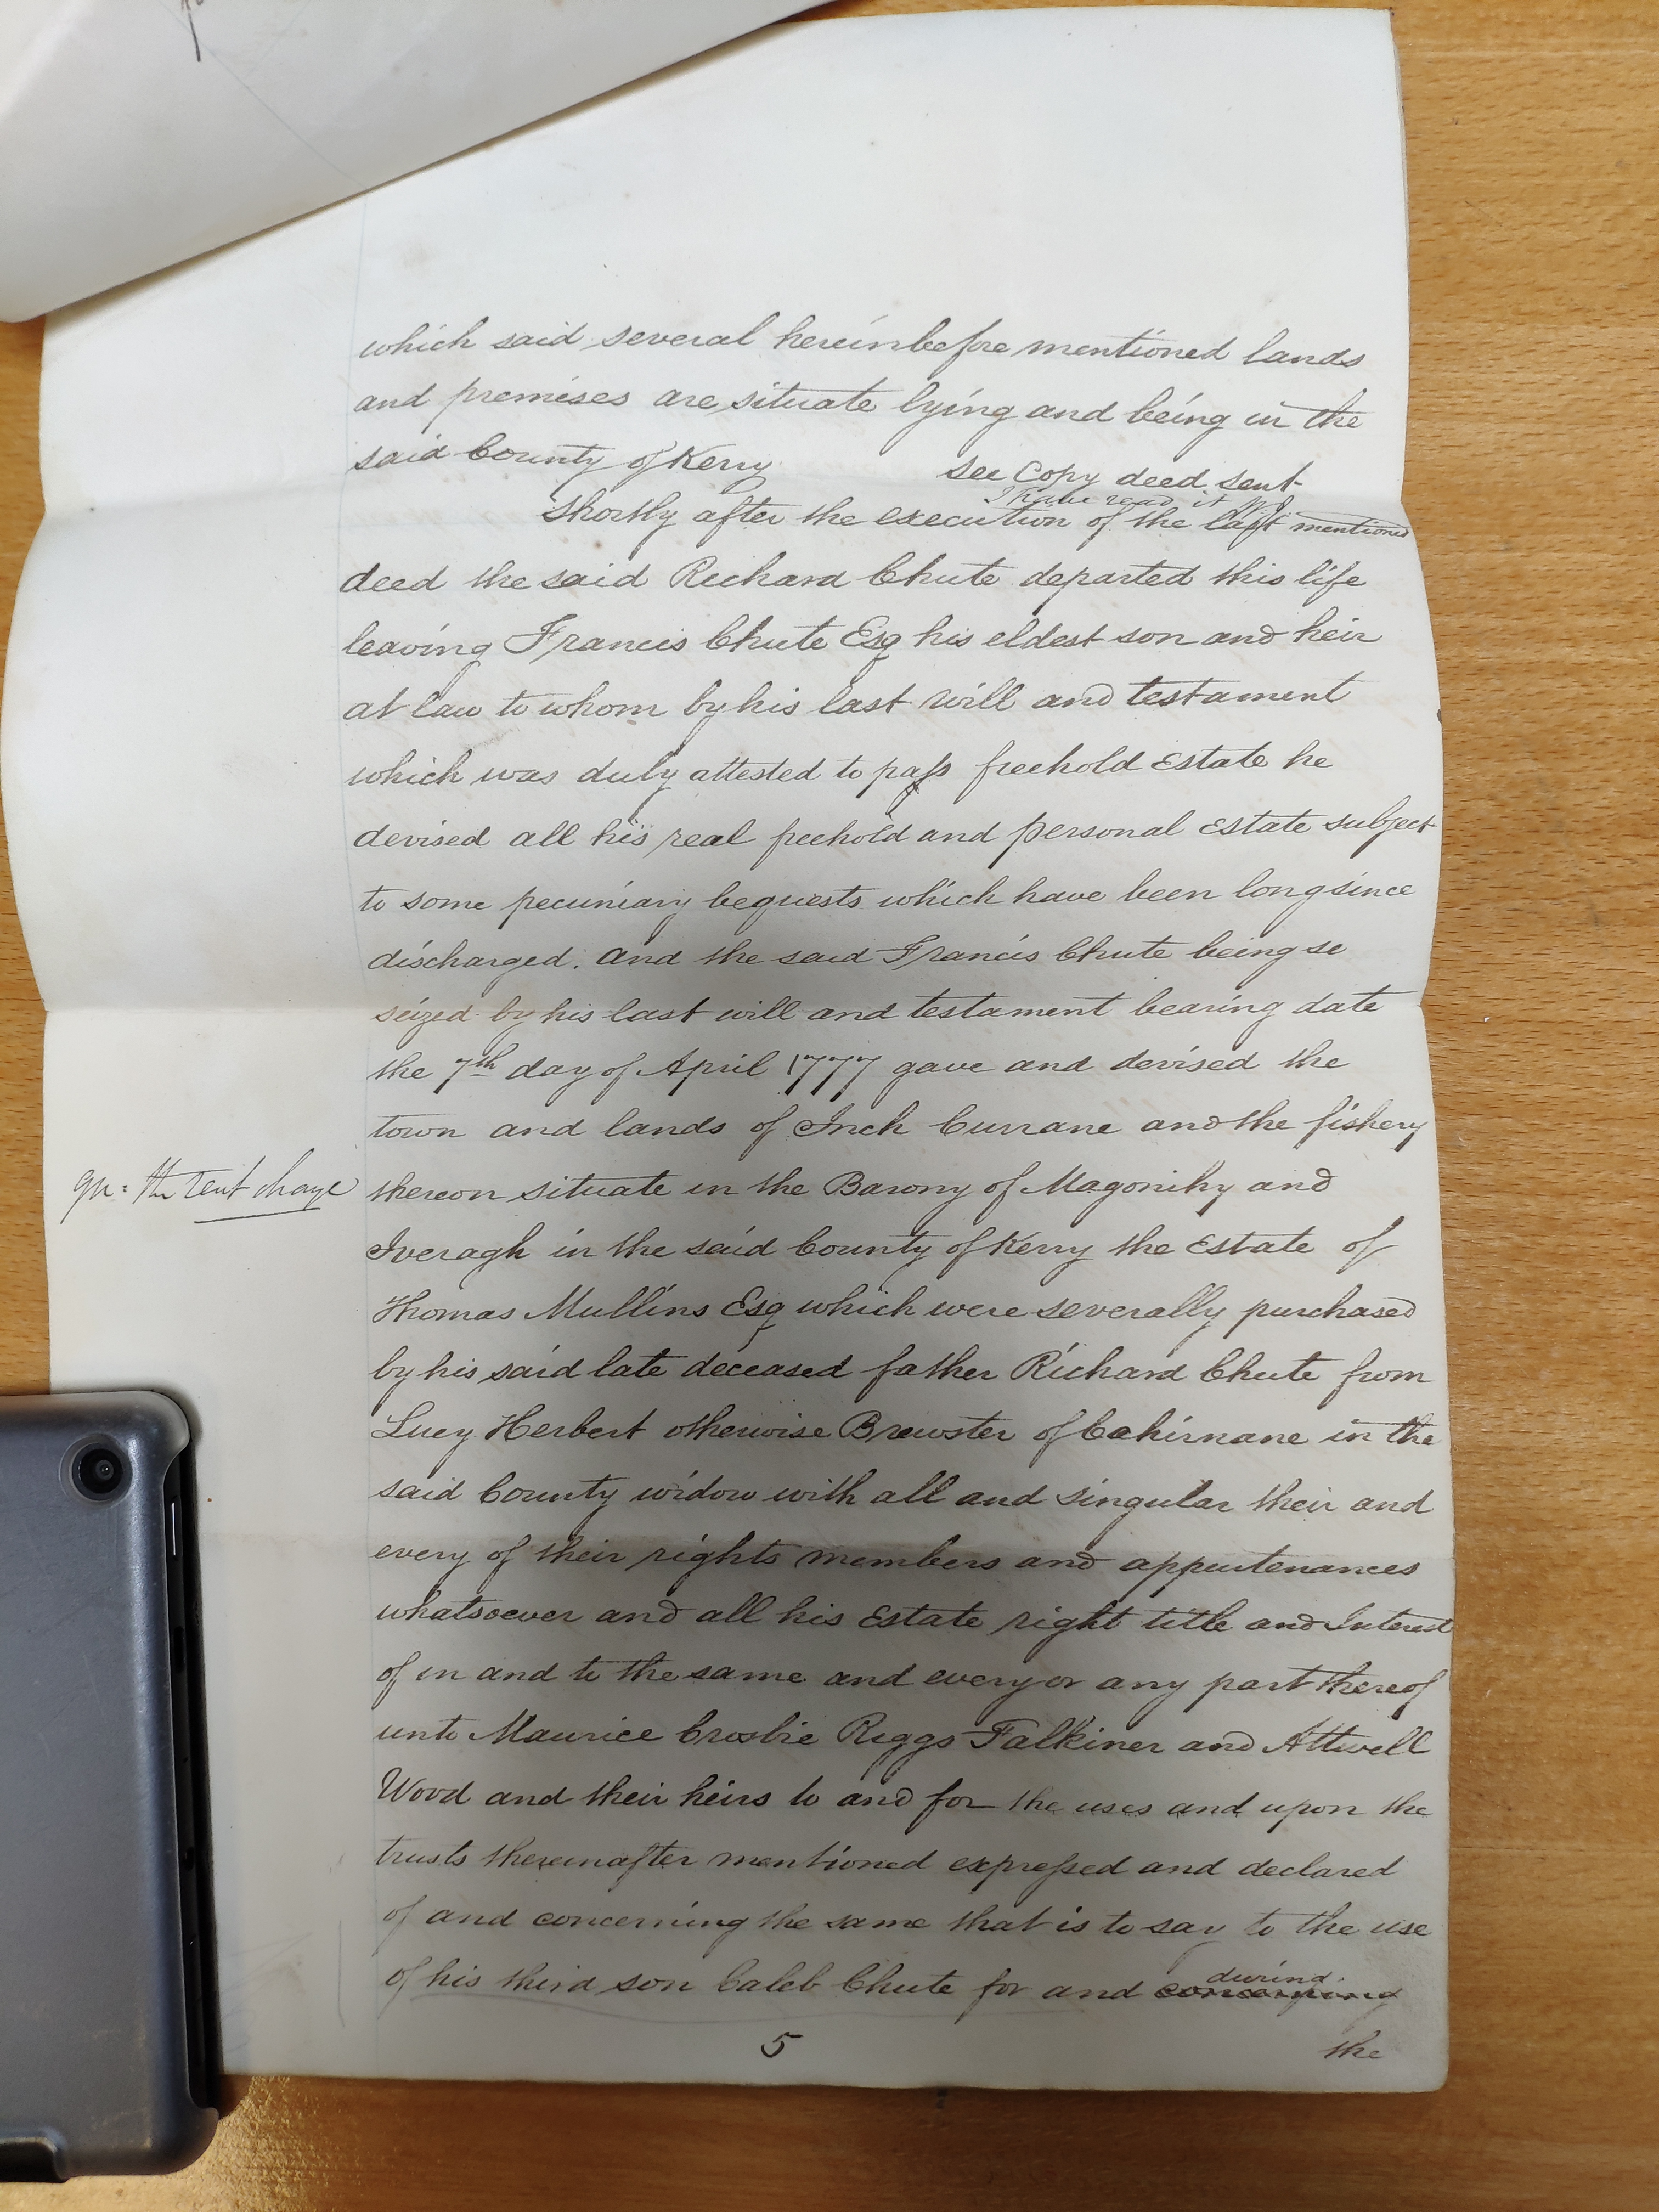 which said several hereinbefore mentioned lands
and premises are situate lying and being in the
said County of Kerry
see Copy deed sent
I have read it
Shortly after the execution of the last mentioned
deed the said Richard Chute departed this life
leaving Francis Chute Esq his eldest son and heir
at law to whom by his last will and testament
which was duly attested to pass freehold Estate he
devised all his real freehold and personal Estate subject
to some pecuniary bequests which have been long since
discharged. And the said Francis Chute being se
seized by his last will and testament bearing date
the 7th day of April 1777 gave and devised the
town and lands of Inch Currane and the fishery
qu: the rent charge
thereon situate in the Barony of Magonihy and
Iveragh in the said County of Kerry the Estate of
Thomas Mullins Esq which were severally purchased
by his said late deceased father Richard Chute from
Lucy Herbert otherwise Brewster of Cahirnane in the
said County widow with all and singular their and
every of their rights members and appurtenances
whatsoever and all his Estate right title and Interest
of in and to the same and every or any part thereof
unto Maurice Crosbie Riggs Falkiner and Attwell
Wood and their heirs to and for the uses and upon the
trusts thereinafter mentioned expressed and declared
of and concerning the same that is to say to the use
of his third son Caleb Chute for and concerning during
5
the